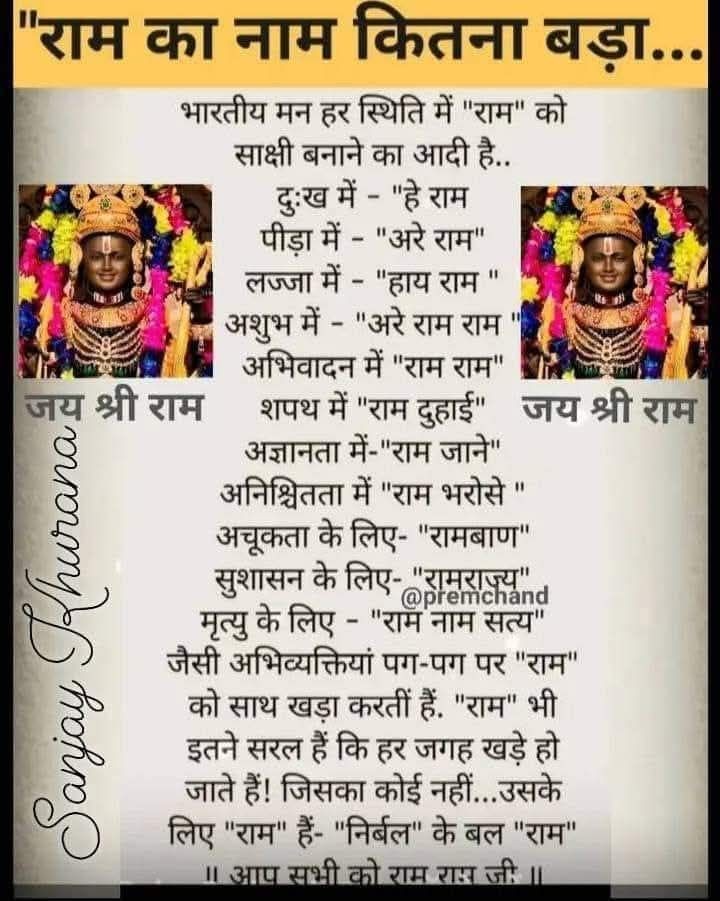 "राम का नाम कितना बड़ा...
भारतीय मन हर स्थिति में "राम" को
साक्षी बनाने का आदी है..
दुःख में - "हे राम
पीड़ा में - "अरे राम"
लज्जा में - "हाय राम "
अशुभ में - "अरे राम राम "
अभिवादन में "राम राम"
शपथ में "राम दुहाई"
जय श्री राम
जय श्री राम
अज्ञानता में-"राम जाने"
अनिश्चितता में "राम भरोसे "
अचूकता के लिए- "रामबाण"
सुशासन के लिए- "रामराज्य"
@premchand
मृत्यु के लिए - "राम नाम सत्य"
जैसी अभिव्यक्तियां पग-पग पर "राम"
को साथ खड़ा करतीं हैं. "राम" भी
इतने सरल हैं कि हर जगह खड़े हो
जाते हैं! जिसका कोई नहीं...उसके
लिए "राम" हैं- "निर्बल" के बल "राम"
॥ आप सभी को राम राम जी ॥
Sanjay Khurana